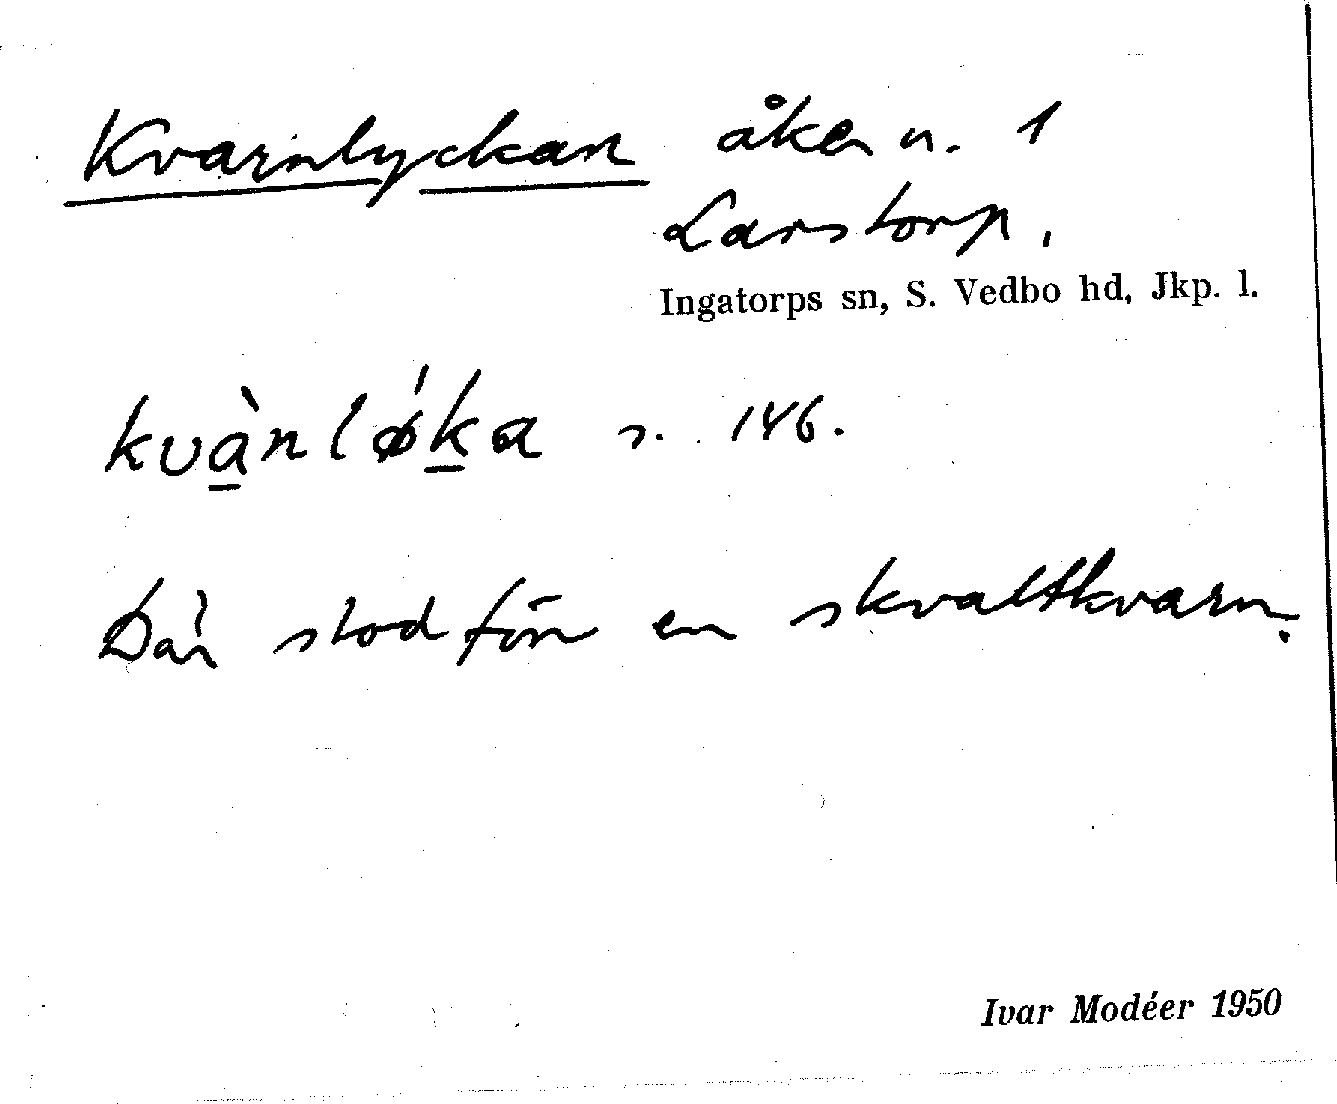 Kvarnlyckan åker n. 1
Larstorp.
Ingatorps sn, S. Vedbo hd, Jkp. l.
kvànlǿka s. 146.
Där stod förr en skvaltkvarn.
Ivar Modéer 1950